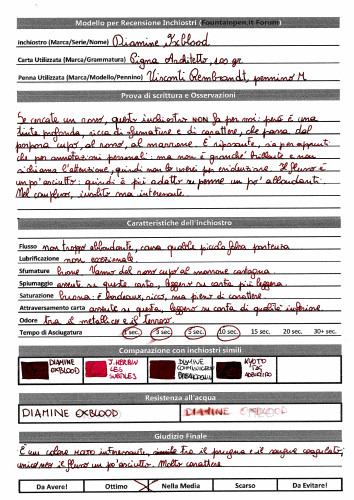 Modello per Recensione Inchiostri (Fountainpen.it Forum)
Inchiostro (Marca/Serie/Nome) Diamine Oxblood
Carta Utilizzata (Marca/Grammatura) Signa Architetto,
Penna Utilizzata (Marca/Modello/Pennino) Visconti Rembrandt, pennino M
Prova di scrittura e Osservazioni
Se cercate un rosso, questo inchiostro NON fa per voi: però è una
tinta profonda, ricca di sfumature e di carattere, che passa dal
porpora cupo, al rosso, al marrone. È riposante, sia per appunti
che per annotazioni personali: ma non è granché brillante e non
richiama l'attenzione, quindi non lo userei per evidenziare. Il flusso è
un po' asciutto: quindi è più adatto su penne un po' abbondanti.
Nel complesso, insolito ma interessante.
Caratteristiche dell'inchiostro
Flusso non troppo abbondante, causa qualche piccola falsa partenza
Lubrificazione non eccezionale
Sfumature buone. Vanno dal rosso cupo al marrone castagna.
Spiumaggio assente su questa carta, leggero su carta più leggera.
Saturazione buona: è bordeaux, ricco, ma pieno di carattere.
Attraversamento carta assente su questa, leggero su carta di qualità inferiore.
Odore tra il metallico e il terroso.
Tempo di Asciugatura 1 sec. 3 sec. 5 sec. 10 sec. 15 sec. 20 sec. 30+ sec.
Comparazione con inchiostri simili
DIAMINE OXBLOOD J. HERBIN DIAMINE KYOTO
Resistenza all'acqua
DIAMINE OXBLOOD DIAMINE OXBLOOD
Giudizio Finale
È un colore molto interessante, simile tra il prugna e il sangue coagulato;
unico neo il flusso un po' asciutto. Molto carattere
Da Avere! Ottimo Nella Media Scarso Da Evitare!